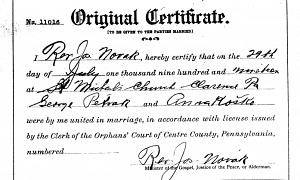 No. 11016 Original Certificate.
[TO BE GIVEN TO THE PARTIES MARRIED]
I, Rev. Jos. Novak, hereby certify that on the 29th
day of July one thousand nine hundred and
at St Michaels Church Clarence Pa
George Petrak and Anna Hosko
were by me united in marriage, in accordance with license issued
by the Clerk of the Orphans' Court of Centre County, Pennsylvania,
numbered
Rev. Jos. Novak
Minister of the Gospel, Justice of the Peace, or Alderman.